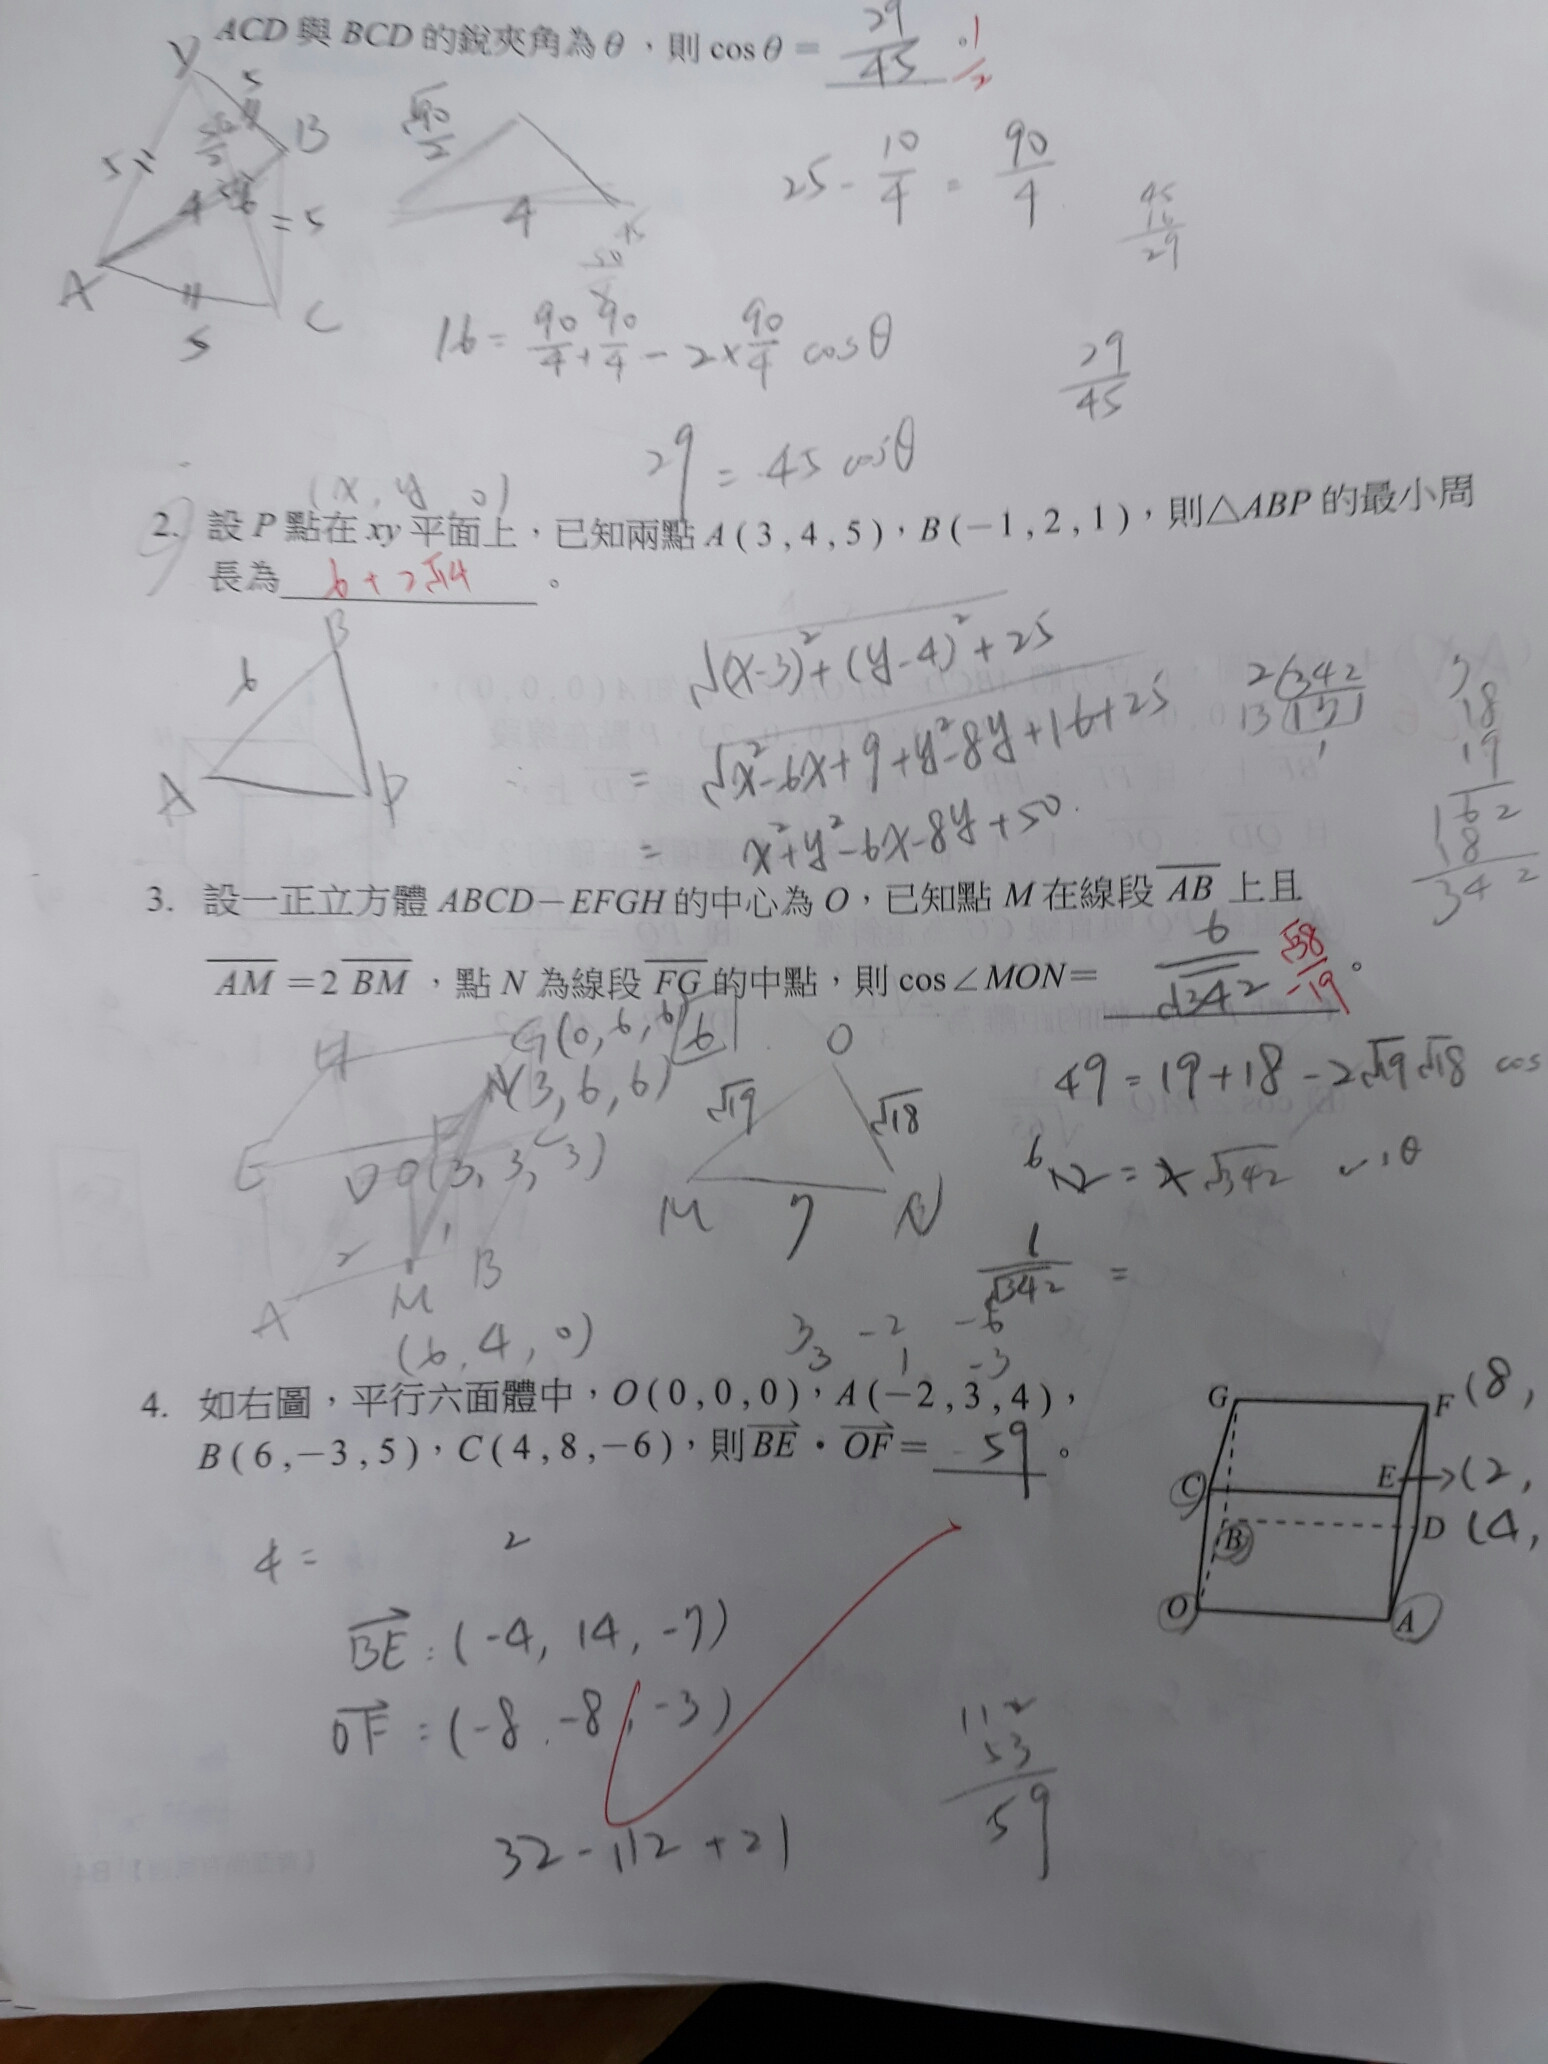 ACD 與 BCD 的銳夾角為θ，則 cosθ = 29/45
1/2
V
5
B
5
4
= 5
A
C
5
√90/2
4
25 - 10/4 = 90/4
45
16
29
16 = 90/4 + 90/4 - 2×90/4 cosθ
29/45
29 = 45 cosθ
(x, y, 0)
2. 設 P 點在 xy 平面上，已知兩點 A(3,4,5)，B(-1,2,1)，則△ABP 的最小周
長為 6+2√14 。
B
6
A
P
√(x-3)²+(y-4)²+25
= √x²-6x+9+y²-8y+16+25
= x²+y²-6x-8y+50.
2 342
18
19
162
18
342
3. 設一正立方體 ABCD－EFGH 的中心為 O，已知點 M 在線段 AB 上且
AM = 2 BM，點 N 為線段 FG 的中點，則 cos∠MON= 6/√342 。
√38/-19
H
G(0,6,6)
6
N(3,6,6)
E
F
D
O(3,3,3)
2
1
A
M
B
(6,4,0)
O
√19
√18
M
7
N
49 = 19+18-2√19√18 cos
6
12 = 2√342
θ
1/√342 =
3 -2 -6
3 1 -3
4. 如右圖，平行六面體中，O(0,0,0)，A(-2,3,4)，
B(6,-3,5)，C(4,8,-6)，則 BE・OF = -59 。
G
F (8,
C
E →(2,
B
D (4,
O
A
4 =
2
BE : (-4, 14, -7)
OF : (-8, -8, -3)
32-112+21
112
53
59